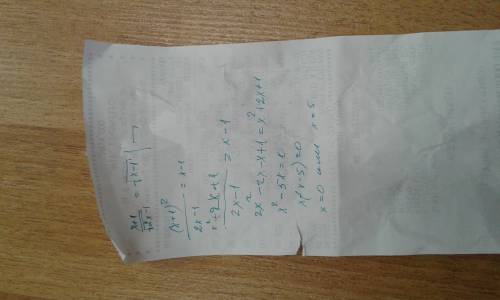 x+1/√2x-1 = √x-1
(x+1)²/2x-1 = x-1
x²+2x+1/2x-1 = x-1
2x²-2x-x+1 = x²+2x+1
x²-5x=0
x(x-5)=0
x=0 или x=5